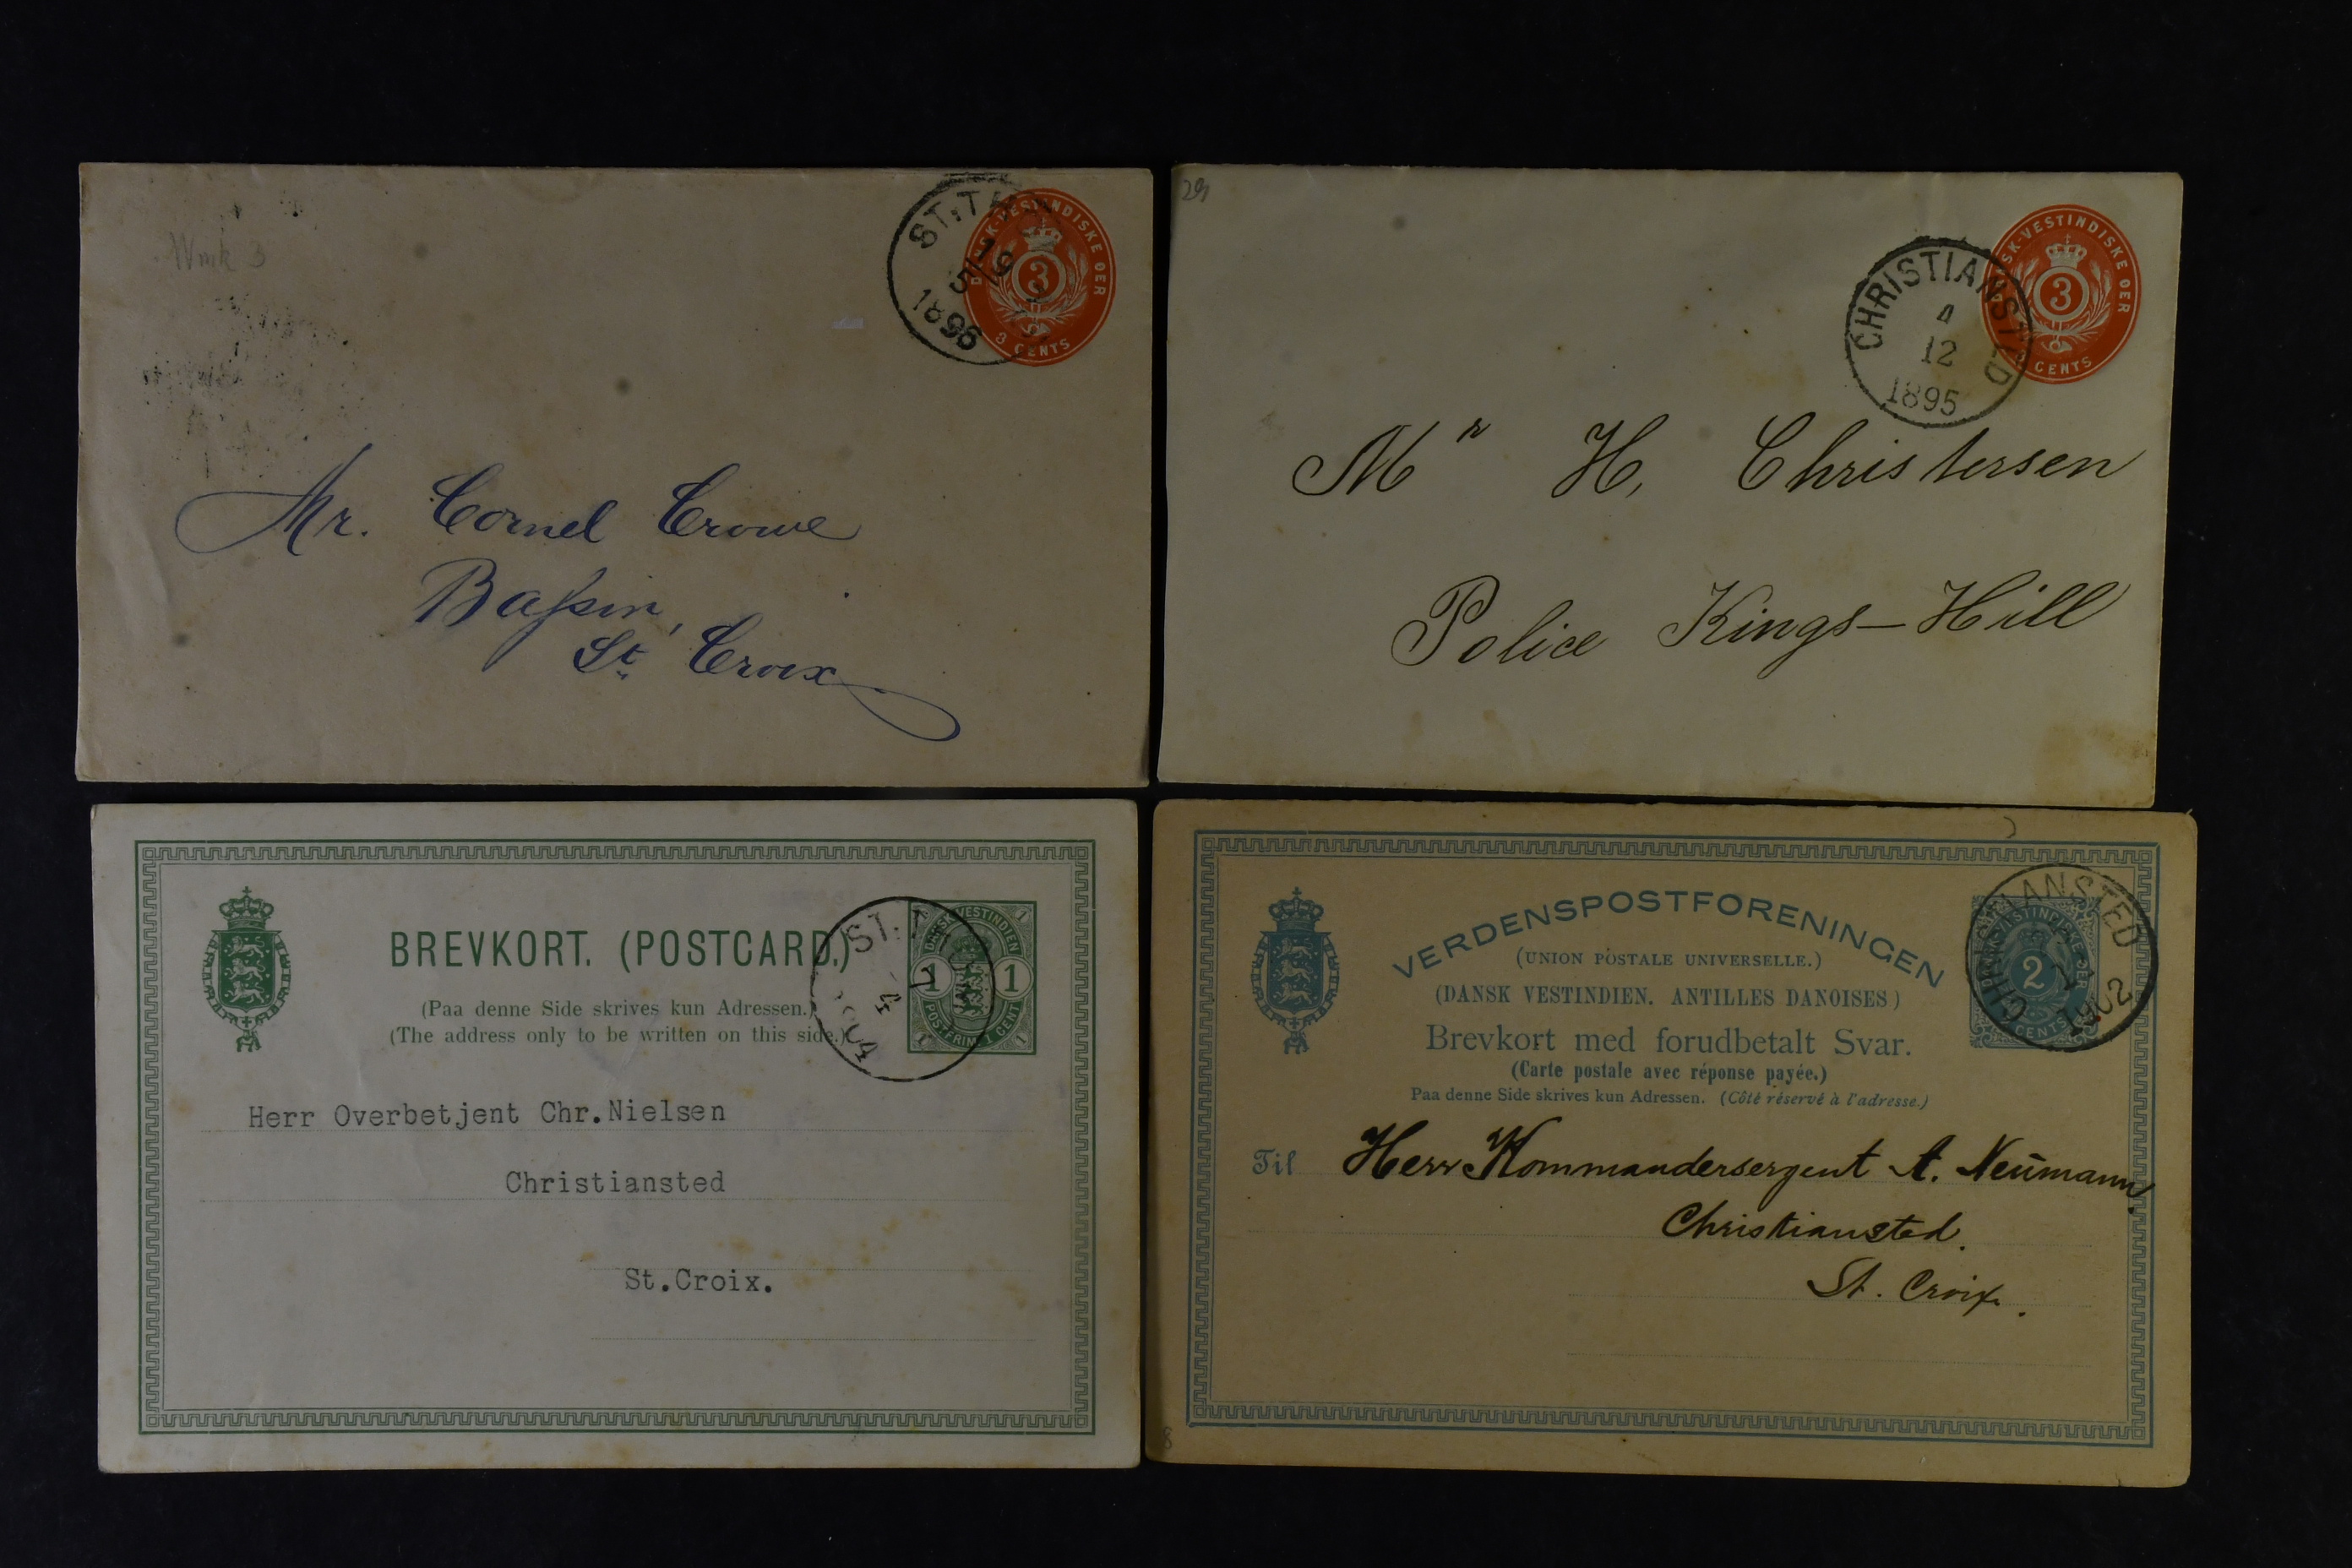 Wmk 3
ST. TH
19
5
1896
DANSK-VESTINDISKE OER
3
3 CENTS
Mr. Cornel Crowe
Bassin,
St. Croix
29
CHRISTIANSTED
4
12
1895
DANSK-VESTINDISKE OER
3
CENTS
Mr H. Christensen
Police Kings-Hill
BREVKORT. (POSTCARD.)
(Paa denne Side skrives kun Adressen.)
(The address only to be written on this side.)
ST.
4
DANSK VESTINDIEN
1 1
POSTFRIM. 1 CENT
Herr Overbetjent Chr.Nielsen
Christiansted
St.Croix.
VERDENSPOSTFORENINGEN
(UNION POSTALE UNIVERSELLE.)
(DANSK VESTINDIEN. ANTILLES DANOISES)
Brevkort med forudbetalt Svar.
(Carte postale avec réponse payée.)
Paa denne Side skrives kun Adressen. (Côté réservé à l'adresse.)
CHRISTIANSTED
1902
2
CENTS
Til Herr Kommandersergent A. Neumann
Christiansted.
St. Croix.
8